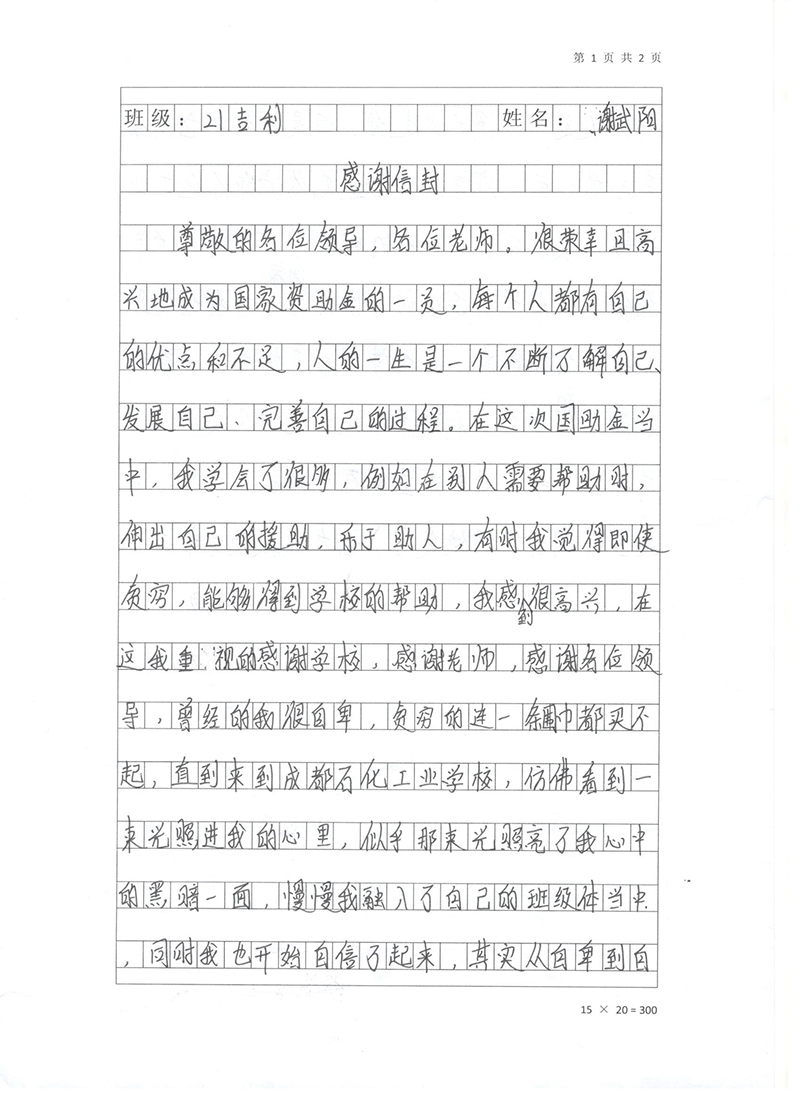 第 1 页 共 2 页
班级：21吉利 姓名：谢武阳
感谢信封
尊敬的各位领导，各位老师。很荣幸且高
兴地成为国家资助金的一员，每个人都有自己
的优点和不足，人的一生是一个不断了解自己、
发展自己、完善自己的过程。在这次国助金当
中，我学会了很多，例如在别人需要帮助时，
伸出自己的援助，乐于助人，有时我觉得即使
贫穷，能够得到学校的帮助，我感到很高兴，在
这我重视的感谢学校，感谢老师，感谢各位领
导，曾经的我很自卑，贫穷的连一条围巾都买不
起，直到来到成都石化工业学校，仿佛看到一
束光照进我的心里，似乎那束光照亮了我心中
的黑暗一面，慢慢我融入了自己的班级体当中
，同时我也开始自信了起来，其实从自卑到自
15 × 20 = 300